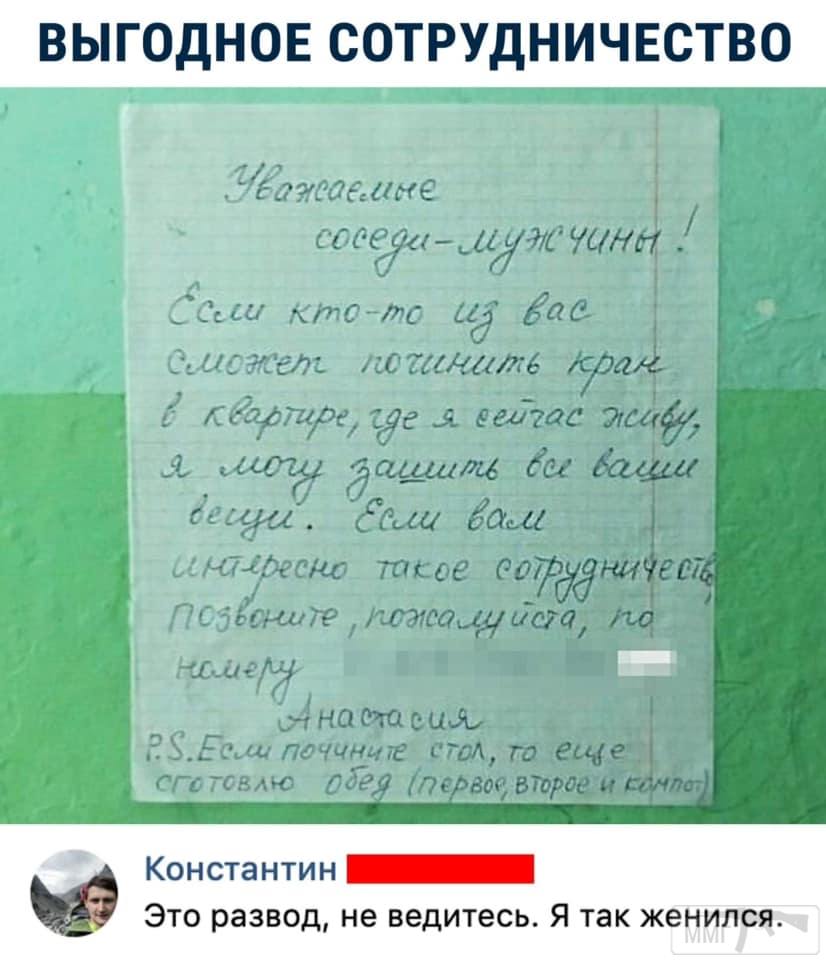 ВЫГОДНОЕ СОТРУДНИЧЕСТВО
Уважаемые
соседи-мужчины!
Если кто-то из вас
сможет починить кран
в квартире, где я сейчас живу,
я могу зашить все ваши
вещи. Если вам
интересно такое сотрудничеств
позвоните, пожалуйста, по
номеру
Анастасия
P.S. Если почините стол, то еще
сготовлю обед (первое, второе и компот)
Константин
Это развод, не ведитесь. Я так женился.
ММГ